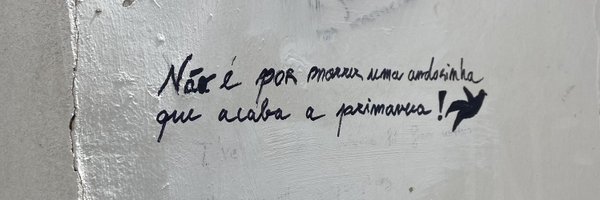 Não é por morrer uma andorinha
que acaba a primavera!